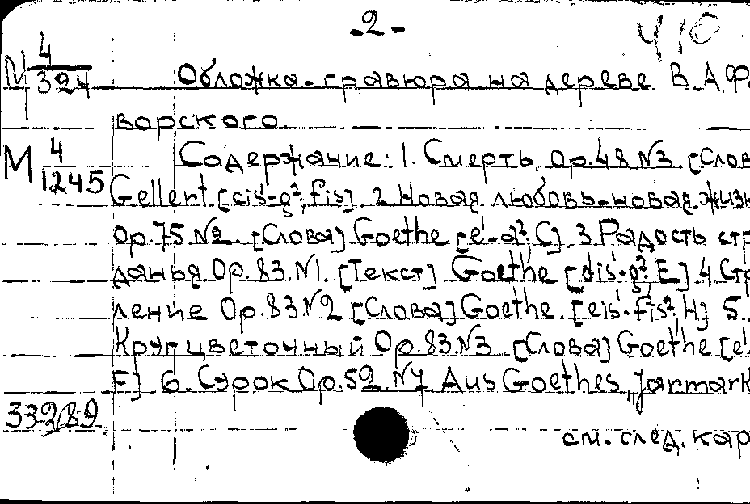 -2-
М 4/324
Обложка-гравюра на дереве В.А.Ф
ворского.
М 4/1245
Содержание: 1. Смерть Op.48 N3 [Слов
Gellert [cis-g², fis]. 2 Новая любовь-новая жизн
Op.75 N2 [Слова] Goethe [e'-a² C] 3 Радость стр
данья Op.83.N1. [Текст] Goethe [dis'-g² E] 4 Стр
ление Op.83 N2 [Слова] Goethe. [eis'-fis² H] 5.
Круг цветочный Op.83.N3 [Слова] Goethe [e'
E] 6. Сурок Op.52 N7 Aus Goethes „Jarmark
33989
см. след. кар